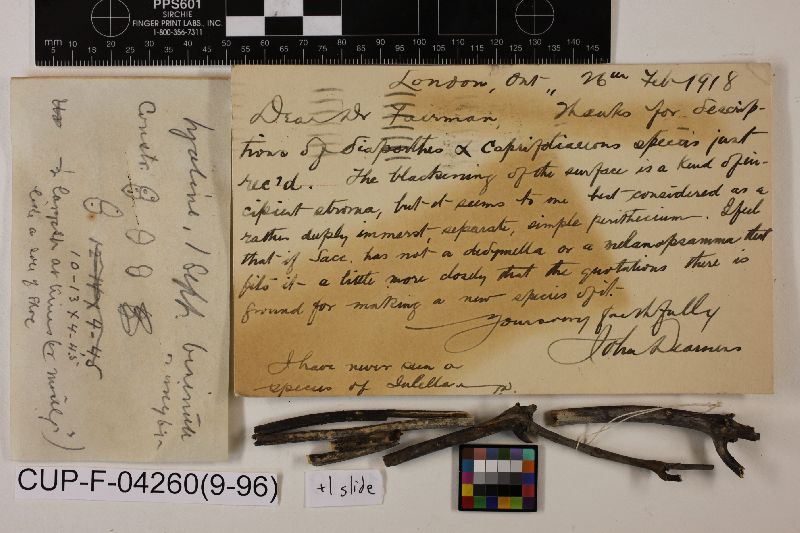 PPS601
SIRCHIE
FINGER PRINT LABS., INC.
1-800-356-7311
mm 5 10 15 20 25 30 35 40 45 50 55 60 65 70 75 80 85 90 95 100 105 110 115 120 125 130 135 140 145
London, Ont., 26th Feb 1918
Dear Dr Fairman, Thanks for descrip-
tions of Diaporthes & Caprifoliaceous species just
rec'd. The blackening of the surface is a kind of in-
cipient stroma, but it seems to me best considered as a
rather deeply immerst, separate, simple perithecium. I feel
that if Sacc. has not a didymella or a melanopsamma that
fits it a little more closely that the quotations there is
ground for making a new species of it.
Yours very faithfully
John Dearness
I have never seen a
species of
hyaline, 1 sept.
Constr
10-13 x 4-4.5
like a sole of shoe
CUP-F-04260(9-96)
+1 slide